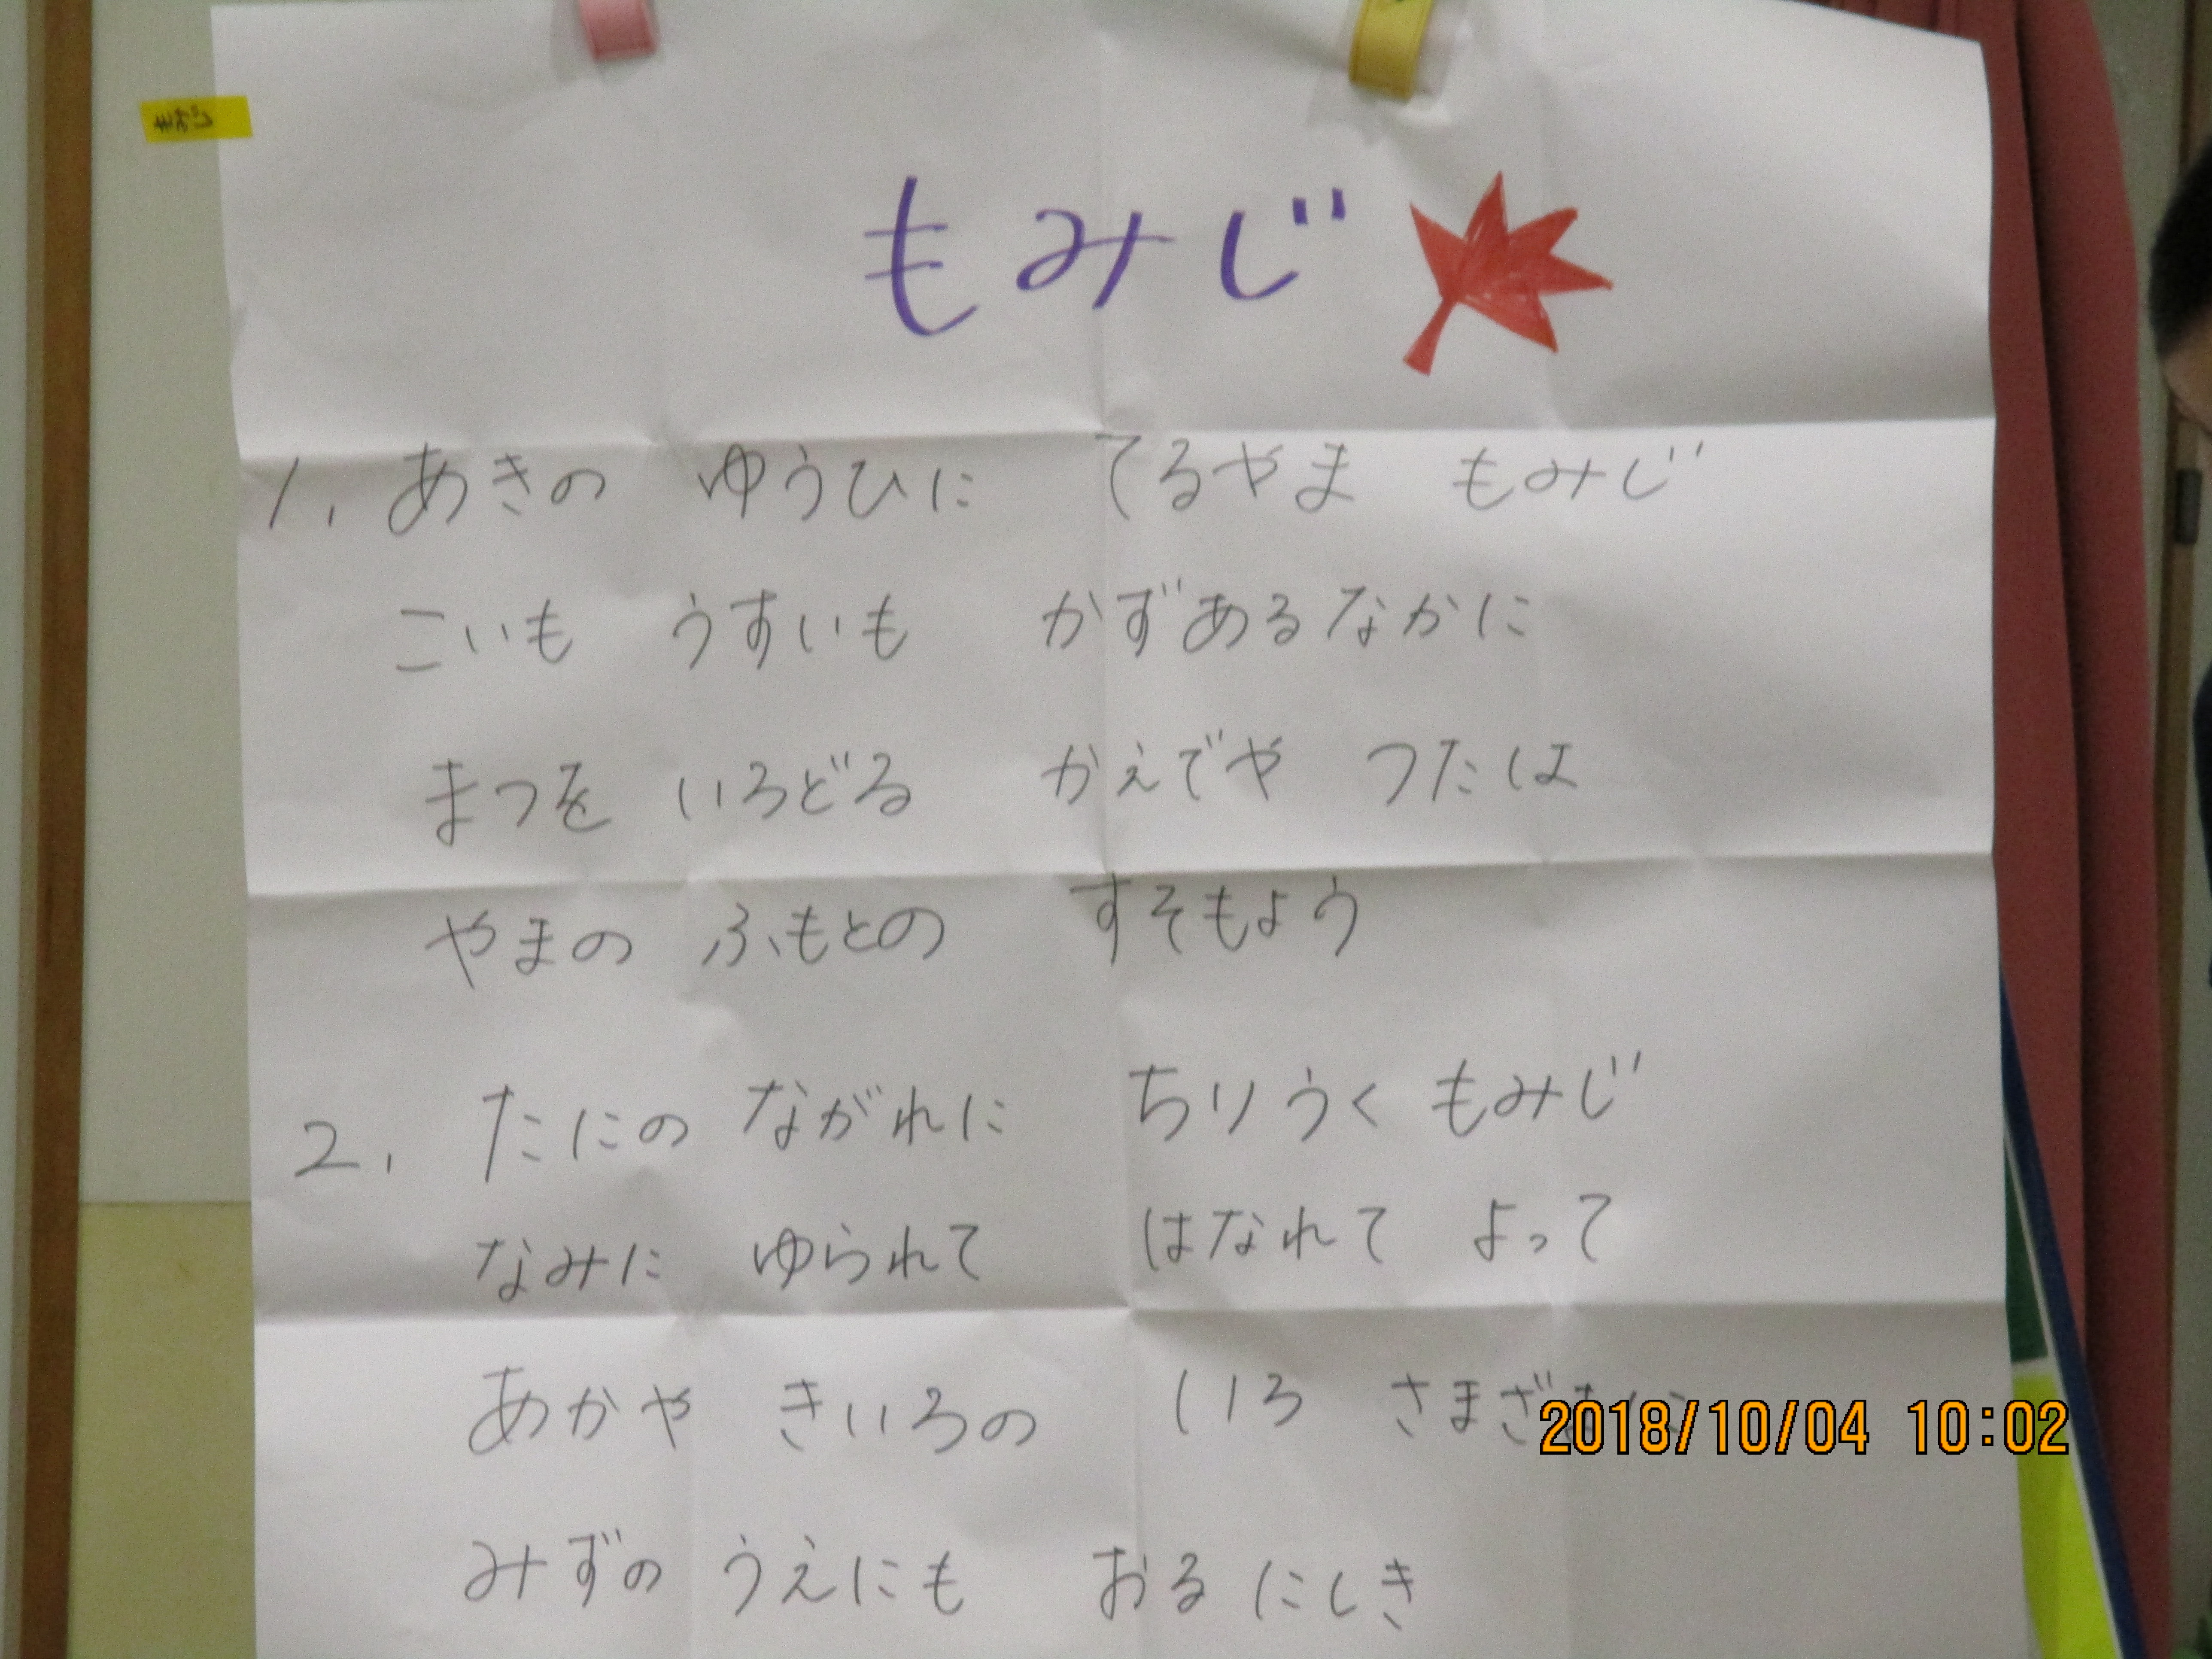 もみじ
1. あきの ゆうひに てるやま もみじ
こいも うすいも かずあるなかに
まつを いろどる かえでや つたは
やまの ふもとの すそもよう
2. たにの ながれに ちりうく もみじ
なみに ゆられて はなれて よって
あかや きいろの いろ さまざまに
2018/10/04 10:02
みずの うえにも おる にしき